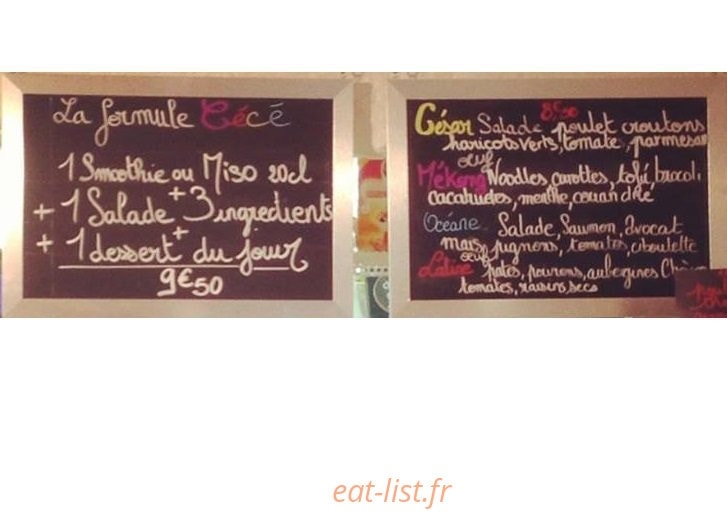 La formule Cécé
1 Smoothie ou Miso 20cl
+ 1 Salade + 3 ingredients
+ 1 dessert du jour
9€50
8,50
César Salade poulet croutons
haricots verts, tomate, parmesan
oeuf
Mékong Noodles carottes, tofu, brocoli
cacahuetes, menthe, coriandre
Océane Salade, Saumon, avocat
mais, pignons, tomates, ciboulette
oeuf
Latine pates, poivrons, aubergines
tomates, raisins secs
eat-list.fr